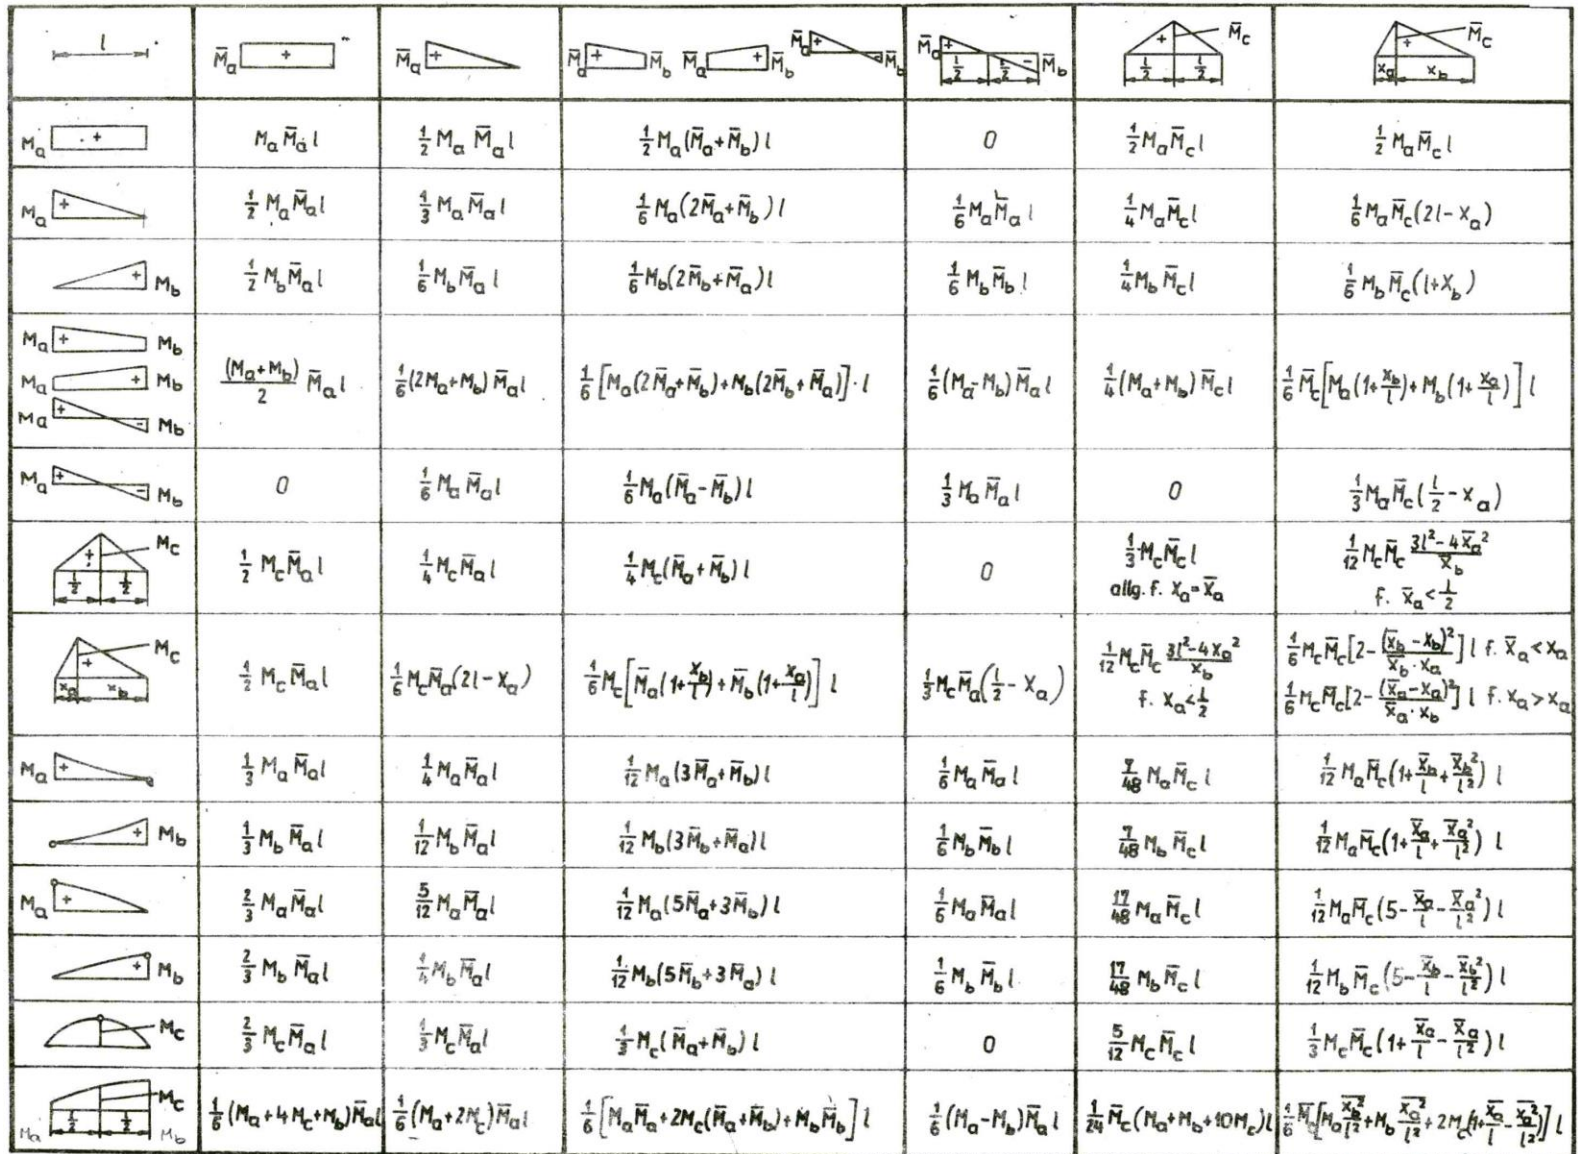 l M̄a + M̄a + M̄a + M̄b M̄a + M̄b M̄a + - M̄b M̄a + - M̄b l/2 l/2 + M̄c l/2 l/2 + M̄c xa xb
Ma + Ma M̄a l 1/2 Ma M̄a l 1/2 Ma(M̄a+M̄b) l 0 1/2 Ma M̄c l 1/2 Ma M̄c l
Ma + 1/2 Ma M̄a l 1/3 Ma M̄a l 1/6 Ma(2M̄a+M̄b) l 1/6 Ma M̄a l 1/4 Ma M̄c l 1/6 Ma M̄c(2l-xa)
+ Mb 1/2 Mb M̄a l 1/6 Mb M̄a l 1/6 Mb(2M̄b+M̄a) l 1/6 Mb M̄b l 1/4 Mb M̄c l 1/6 Mb M̄c(l+xb)
Ma + Mb
Ma + Mb (Ma+Mb)/2 M̄a l 1/6(2Ma+Mb) M̄a l 1/6[Ma(2M̄a+M̄b)+Mb(2M̄b+M̄a)]·l 1/6(Ma-Mb) M̄a l 1/4(Ma+Mb) M̄c l 1/6 M̄c[Ma(1+xb/l)+Mb(1+xa/l)] l
Ma + - Mb
Ma + - Mb 0 1/6 Ma M̄a l 1/6 Ma(M̄a-M̄b) l 1/3 Ma M̄a l 0 1/3 Ma M̄c(l/2-xa)
+ Mc l/2 l/2 1/2 Mc M̄a l 1/4 Mc M̄a l 1/4 Mc(M̄a+M̄b) l 0 1/3 Mc M̄c l 1/12 Mc M̄c (3l²-4x̄a²)/x̄b
allg. f. xa=x̄a f. x̄a<l/2
+ Mc xa xb 1/2 Mc M̄a l 1/6 Mc M̄a(2l-xa) 1/6 Mc[M̄a(1+xb/l)+M̄b(1+xa/l)] l 1/3 Mc M̄a(l/2-xa) 1/12 Mc M̄c (3l²-4xa²)/xb 1/6 Mc M̄c[2-(x̄b-xb)²/(x̄b·xa)] l f. x̄a<xa
f. xa<l/2 1/6 Mc M̄c[2-(x̄a-xa)²/(x̄a·xb)] l f. xa>xa
Ma + 1/3 Ma M̄a l 1/4 Ma M̄a l 1/12 Ma(3M̄a+M̄b) l 1/6 Ma M̄a l 7/48 Ma M̄c l 1/12 Ma M̄c(1+x̄b/l+x̄b²/l²) l
+ Mb 1/3 Mb M̄a l 1/12 Mb M̄a l 1/12 Mb(3M̄b+M̄a) l 1/6 Mb M̄b l 7/48 Mb M̄c l 1/12 Ma M̄c(1+x̄a/l+x̄a²/l²) l
Ma + 2/3 Ma M̄a l 5/12 Ma M̄a l 1/12 Ma(5M̄a+3M̄b) l 1/6 Ma M̄a l 17/48 Ma M̄c l 1/12 Ma M̄c(5-x̄a/l-x̄a²/l²) l
+ Mb 2/3 Mb M̄a l 1/4 Mb M̄a l 1/12 Mb(5M̄b+3M̄a) l 1/6 Mb M̄b l 17/48 Mb M̄c l 1/12 Mb M̄c(5-x̄b/l-x̄b²/l²) l
Mc 2/3 Mc M̄a l 1/3 Mc M̄a l 1/3 Mc(M̄a+M̄b) l 0 5/12 Mc M̄c l 1/3 Mc M̄c(1+x̄a/l-x̄a/l²) l
Ma Mc l/2 l/2 Mb 1/6(Ma+4Mc+Mb)M̄a l 1/6(Ma+2Mc)M̄a l 1/6[Ma M̄a+2Mc(M̄a+M̄b)+Mb M̄b] l 1/6(Ma-Mb)M̄a l 1/24 M̄c(Ma+Mb+10Mc) l 1/6 M̄c[Ma x̄b²/l²+Mb x̄a²/l²+2Mc(1+x̄a/l-x̄a²/l²)] l